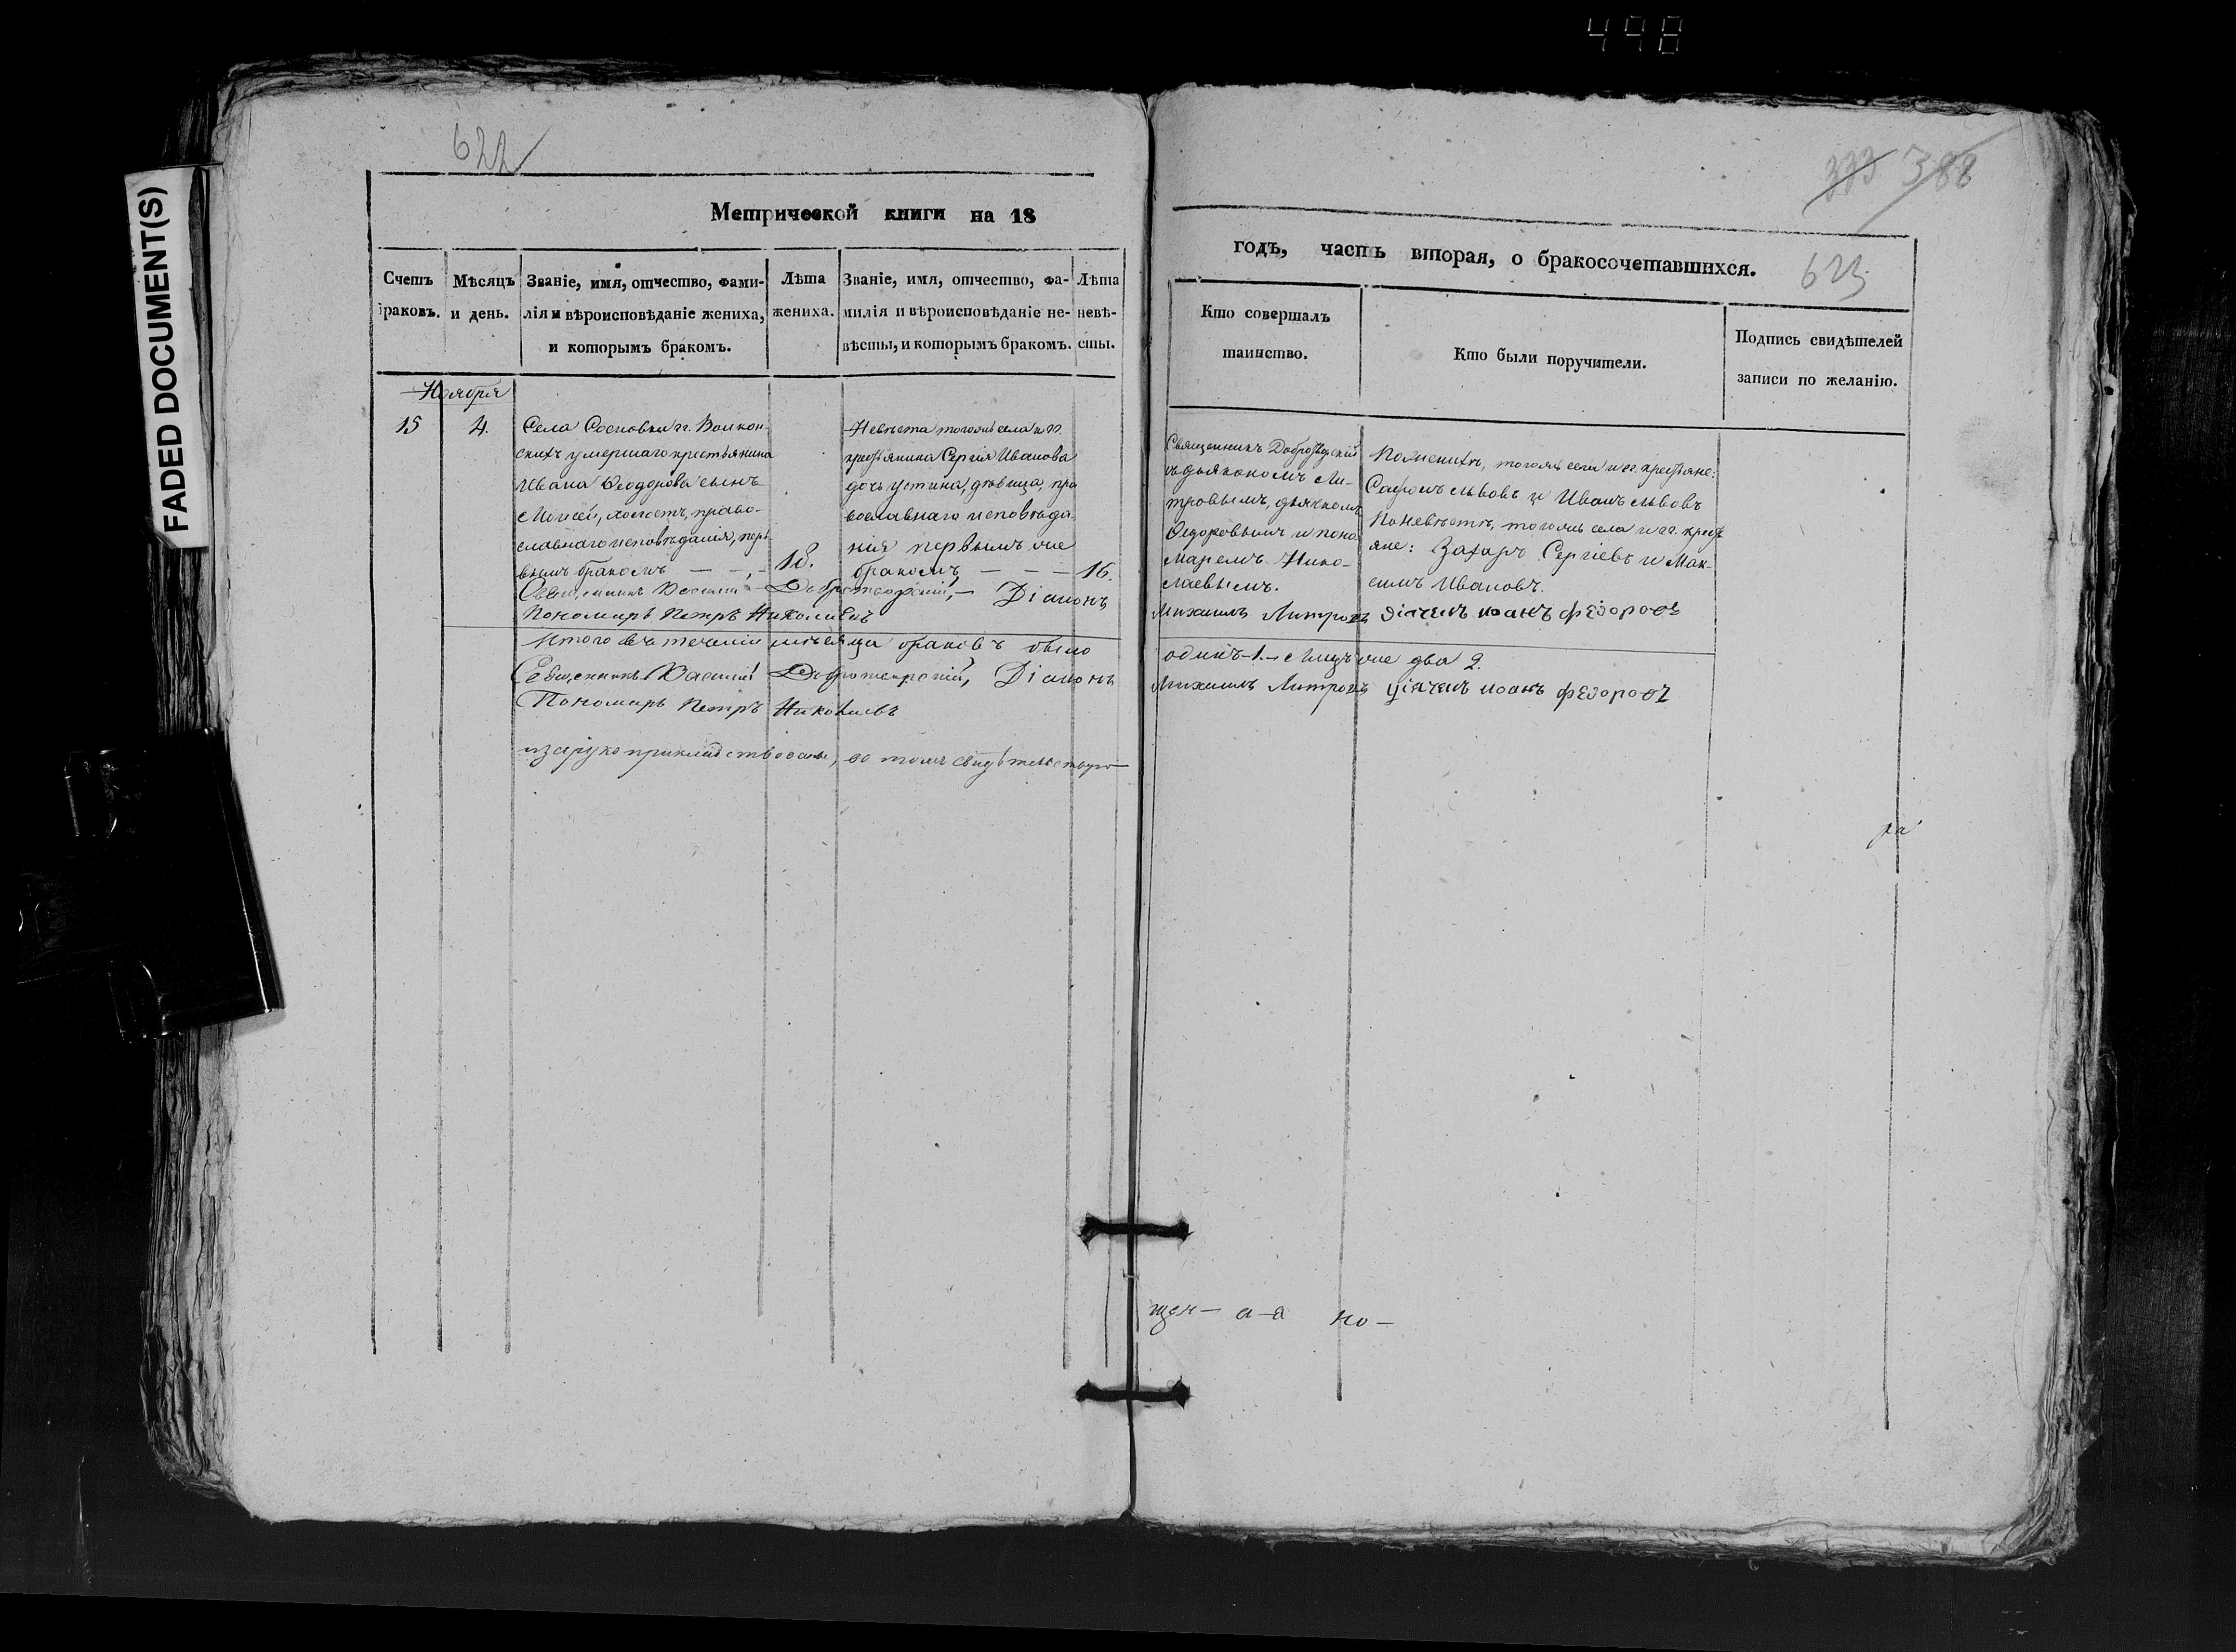 498
FADED DOCUMENT(S)
622
Метрической книги на 18
Счетъ браковъ.
Мѣсяцъ и день.
Званіе, имя, отчество, фами-
лія и вѣроисповѣданіе жениха,
и которымъ бракомъ.
Лѣта
жениха.
Званіе, имя, отчество, фа-
милія и вѣроисповѣданіе не-
вѣсты, и которымъ бракомъ.
Лѣта
невѣ-
сты.
Ноября
15
4.
Села Сосновки гг. Волкон-
скихъ умершаго крестьянина
Ивана Ѳеодорова сынъ
Моисей, холостъ, право-
славнаго исповѣданія, перв-
вымъ бракомъ — —, —
18.
Невѣста тогожъ села и гг.
крестьянина Сергія Иванова
дочь Устина, дѣвица, пра
вославнаго исповѣда
нія первымъ же
бракомъ, — — —
16.
Священникъ Василий Добротворский, — Діаконъ
Пономарь Петръ Николаевъ
Итого въ теченіи мѣсяца браковъ было
Священникъ Василий Добротворский, Діаконъ
Пономарь Петръ Николаевъ
о томъ свидѣтельствую
333 388
годъ, часть вторая, о бракосочетавшихся.
623
Кто совершалъ
таинство.
Кто были поручители.
Подпись свидѣтелей
записи по желанію.
Священникъ Добротворский
съ діакономъ Ми-
тровымъ, дьячкомъ
Ѳедоровымъ и поно
маремъ Нико-
лаевымъ.
По женихѣ, тогожъ села и гг. крестьяне:
Сафонъ Львовъ и Иванъ Львовъ
По невѣстѣ, тогожъ села и гг. кресть
яне: Захаръ Сергіевъ и Мак-
симъ Ивановъ.
Михаилъ Митровъ діячекъ Иоанъ Федоровъ
одинъ — 1. — Лицъ же два 2.
Михаилъ Митровъ діячекъ Иоанъ Федоровъ
ра
щен — а-я но —